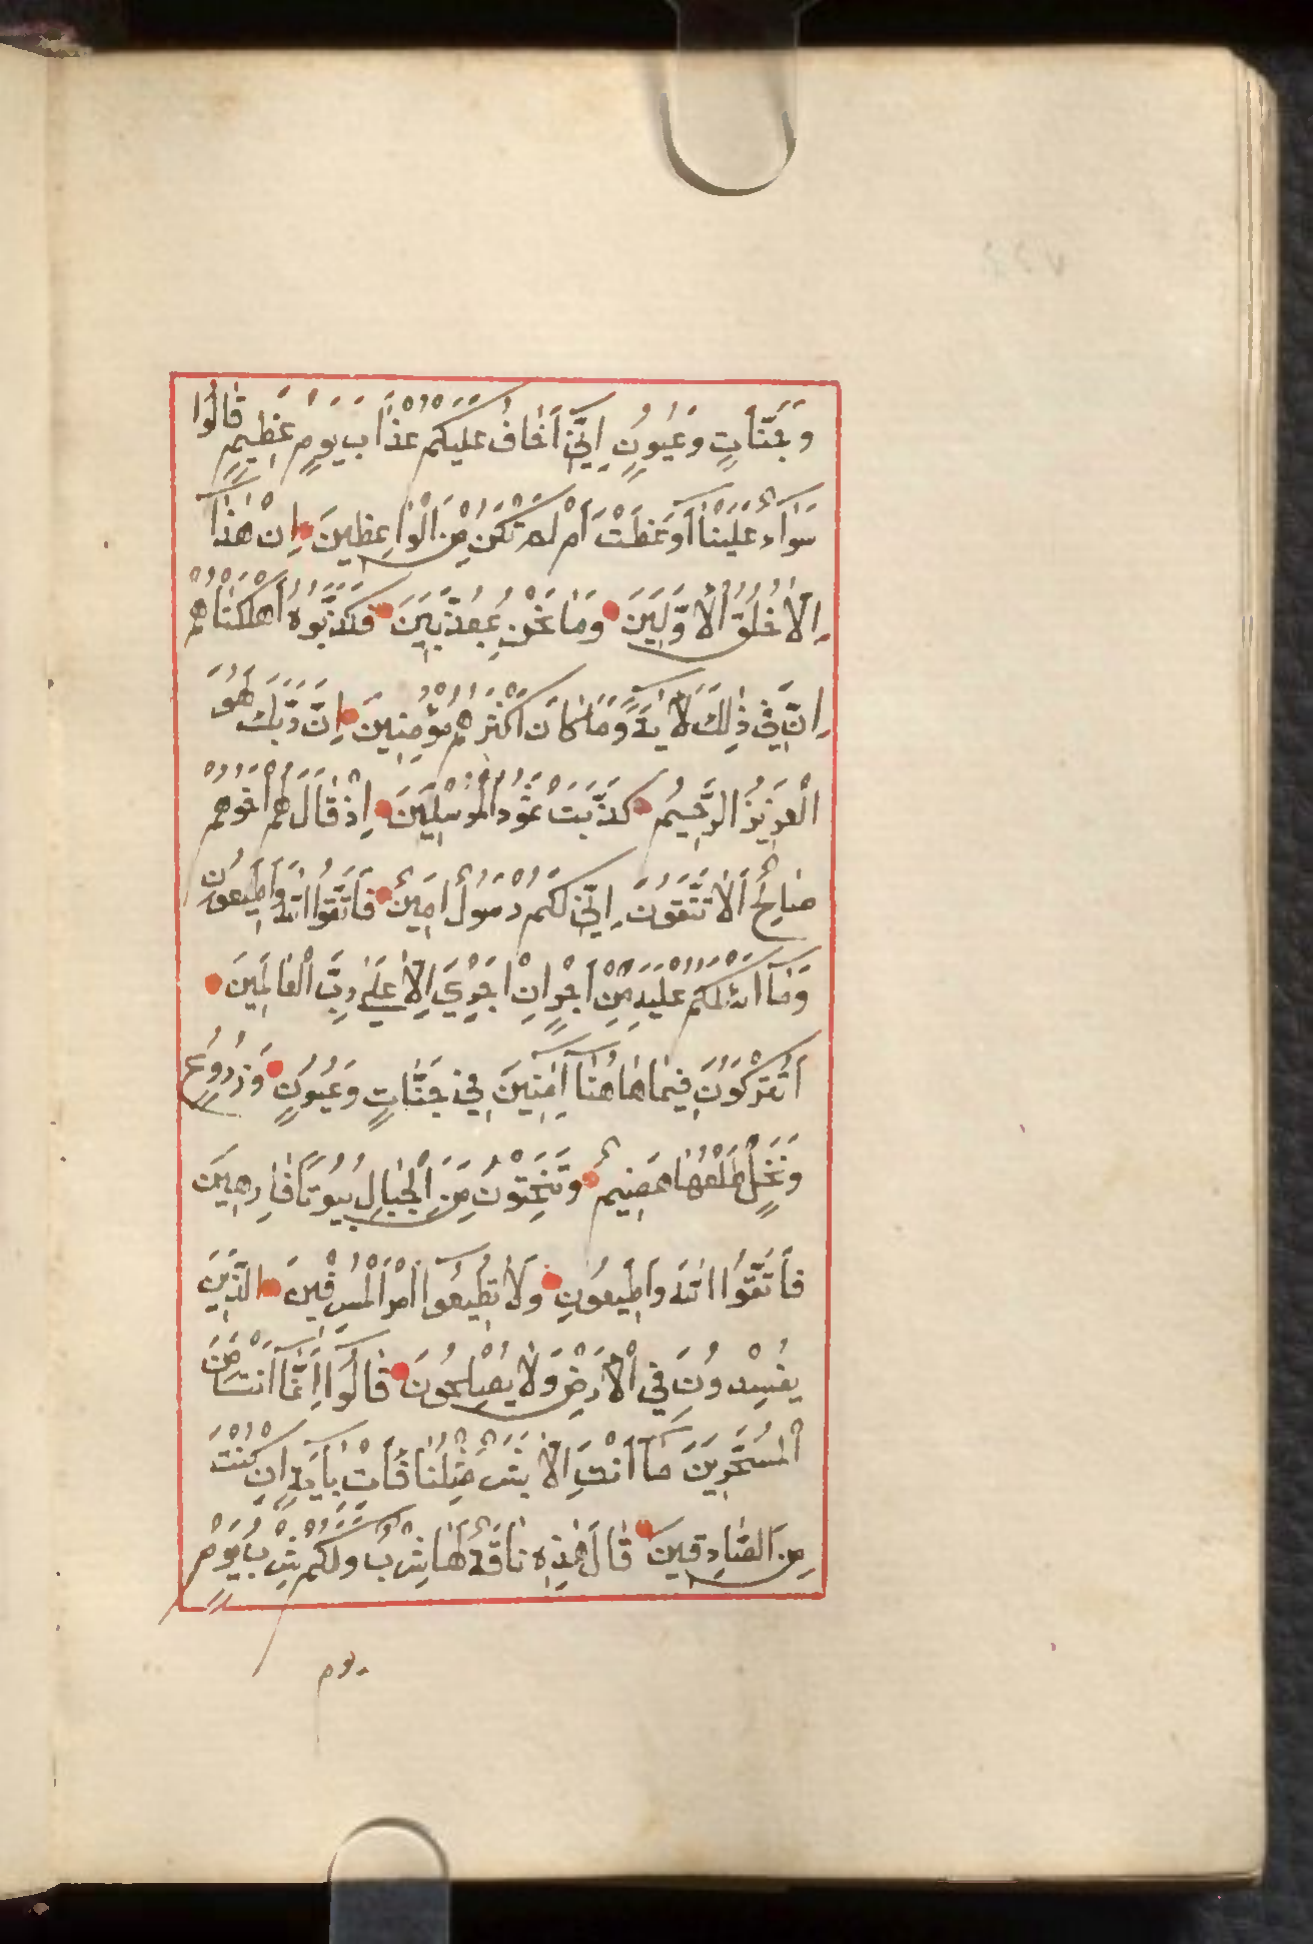 وَجَنَّاتٍ وَعُيُونٍ اِنِّي اَخَافُ عَلَيْكُمْ عَذَابَ يَوْمٍ عَظِيمٍ قَالُوا
سَوَآءٌ عَلَيْنَا اَوَعَظْتَ اَمْ لَمْ تَكُنْ مِنَ الْوَاعِظِينَ اِنْ هٰذَا
اِلَّا خُلُقُ الْاَوَّلِينَ وَمَا نَحْنُ بِمُعَذَّبِينَ فَكَذَّبُوهُ اَهْلَكْنَاهُمْ
اِنَّ فِي ذٰلِكَ لَاٰيَةً وَمَا كَانَ اَكْثَرُهُمْ مُؤْمِنِينَ اِنَّ رَبَّكَ لَهُوَ
الْعَزِيزُ الرَّحِيمُ كَذَّبَتْ ثَمُودُ الْمُرْسَلِينَ اِذْ قَالَ لَهُمْ اَخُوهُمْ
صَالِحٌ اَلَا تَتَّقُونَ اِنِّي لَكُمْ رَسُولٌ اَمِينٌ فَاتَّقُوا اللّٰهَ وَاَطِيعُونِ
وَمَآ اَسْئَلُكُمْ عَلَيْهِ مِنْ اَجْرٍ اِنْ اَجْرِيَ اِلَّا عَلٰى رَبِّ الْعَالَمِينَ
اَتُتْرَكُونَ فِيمَا هَاهُنَآ اٰمِنِينَ فِي جَنَّاتٍ وَعُيُونٍ وَزُرُوعٍ
وَنَخْلٍ طَلْعُهَا هَضِيمٌ وَتَنْحِتُونَ مِنَ الْجِبَالِ بُيُوتًا فَارِهِينَ
فَاتَّقُوا اللّٰهَ وَاَطِيعُونِ وَلَا تُطِيعُوا اَمْرَ الْمُسْرِفِينَ الَّذِينَ
يُفْسِدُونَ فِي الْاَرْضِ وَلَا يُصْلِحُونَ قَالُوا اِنَّمَا اَنْتَ مِنَ
الْمُسَحَّرِينَ مَآ اَنْتَ اِلَّا بَشَرٌ مِثْلُنَا فَاْتِ بِاٰيَةٍ اِنْ كُنْتَ
مِنَ الصَّادِقِينَ قَالَ هٰذِهِ نَاقَةٌ لَهَا شِرْبٌ وَلَكُمْ شِرْبُ يَوْمٍ
يوم